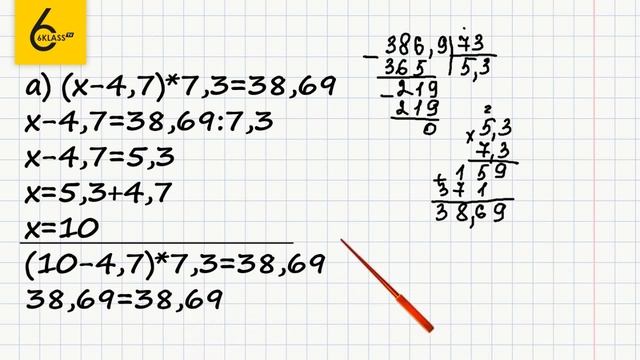 6
6KLASS TV
а) (x-4,7)*7,3=38,69
x-4,7=38,69:7,3
x-4,7=5,3
x=5,3+4,7
x=10
(10-4,7)*7,3=38,69
38,69=38,69
- 386,9 | 73
365 | 5,3
- 219
219
0
2
x 5,3
7,3
+ 1 5 9
3 7 1
3 8,6 9